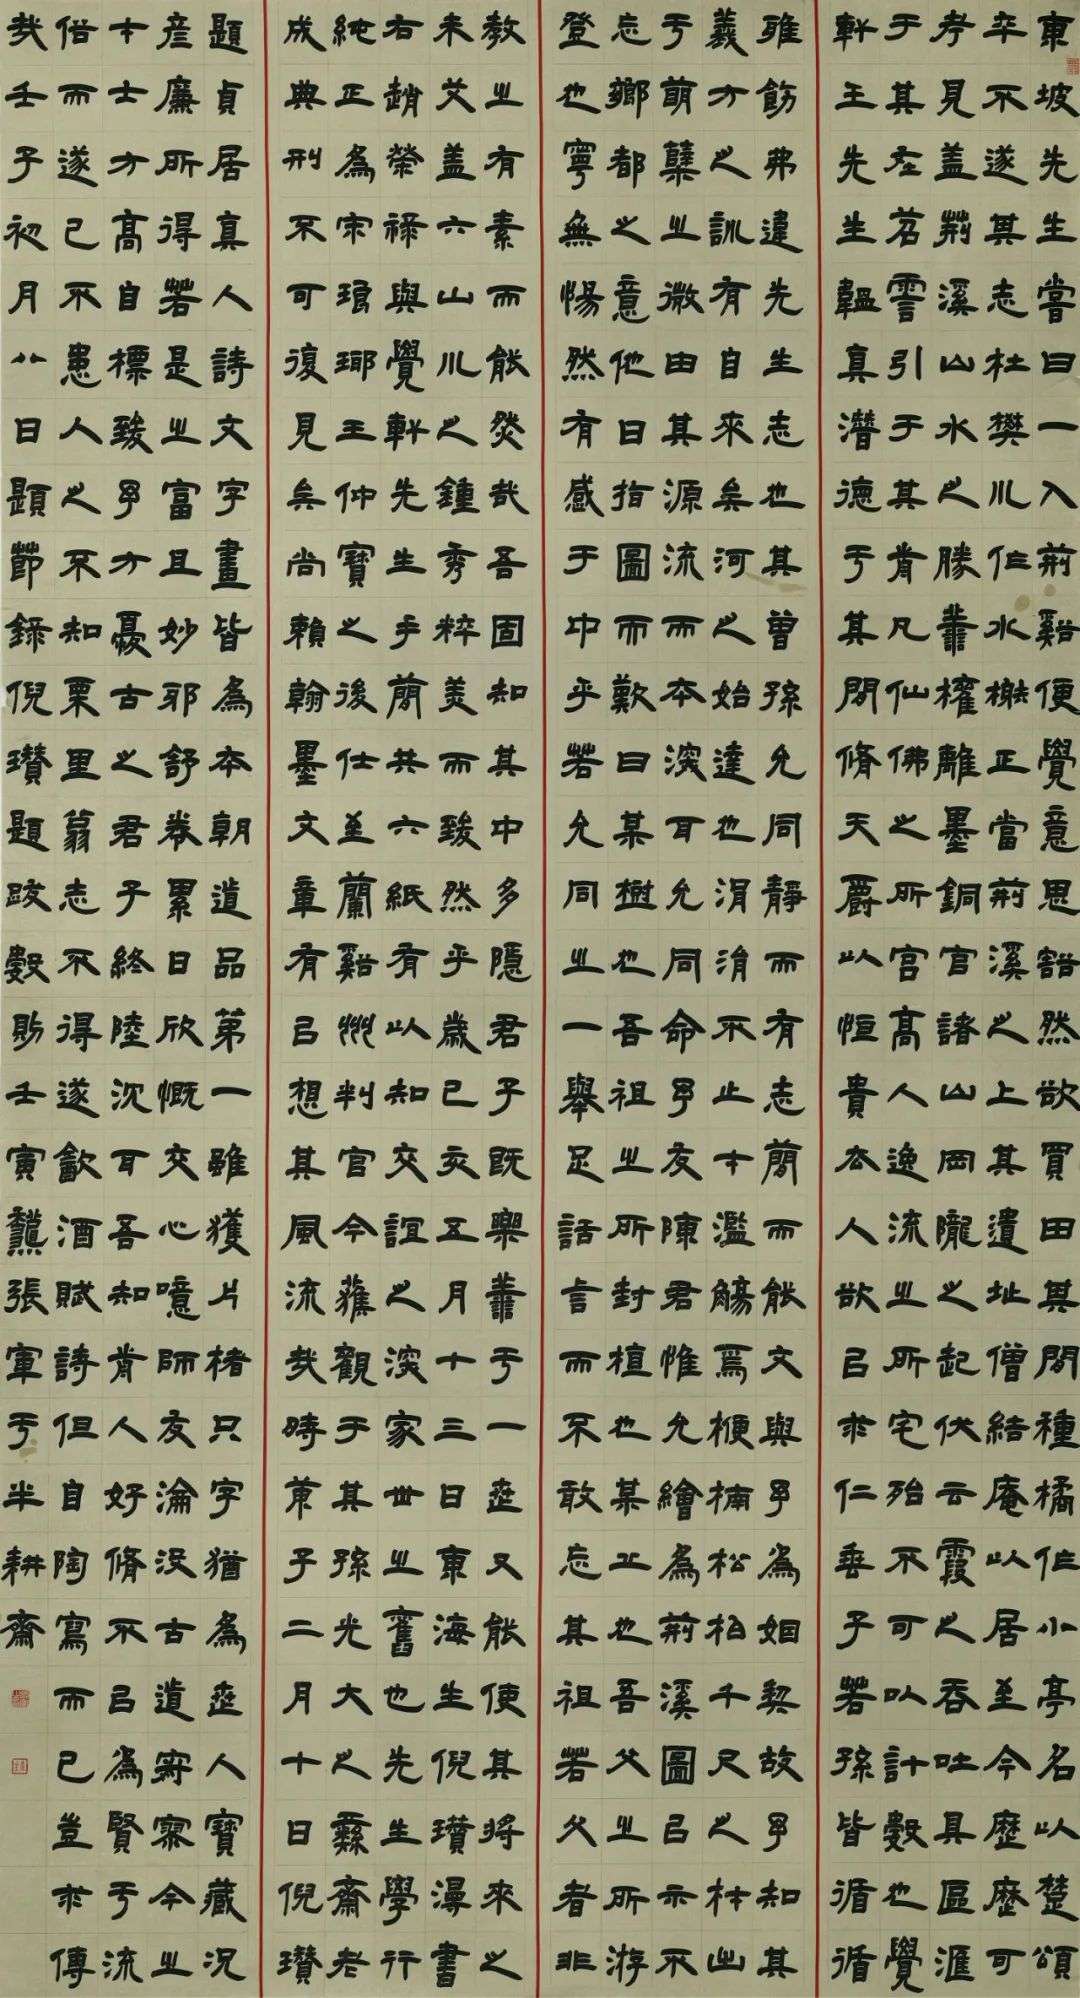 東坡先生嘗曰一入荊谿便覺意思豁然欲買田其間種橘作小亭名以楚頌
卒不遂其志杜樊川作水榭正當荊溪之上其遺址僧結庵以居至今歷歷可
考見蓋荊溪山水之勝叢榷離墨銅官諸山岡隴之起伏云霞之吞吐具區滙
于其左苕霅引于其肯凡仙佛之所宮高人逸流之所宅殆不可以計數也覺
軒王先生韞真潛德于其間脩天爵以恒貴厷人欲以求仁垂子若孫皆循循
雅飭弗違先生志也其曾孫允同靜而有志簡而能文與予為姻契故予知其
義方之訓有自來矣河之始達也涓涓不止才濫觴焉楩楠松柏千尺之材此
于萌蘗之微由其源流而本深耳允同命予友陳君惟允繪為荊溪圖以示不
忘鄉都之意他日指圖而歎曰某樹也吾祖之所封植也某丘也吾父之所游
登也寧無惕然有感于中乎若允同之一舉足話言而不敢忘其祖若父者非
教之有素而能然哉吾固知其中多隱君子既樂叢于一世又能使其將來之
未艾蓋六山川之鍾秀粹美而致然乎歲己亥五月十三日東海生倪瓚漫書
右趙榮祿與覺軒先生手簡共六紙有以知交誼之深家世之舊也先生學行
純正為宋琅琊王仲寶之後仕至蘭谿州判官今獲觀于其孫光大之彝齋老
成典刑不可復見矣尚賴翰墨文章有以想其風流哉時庚子二月十日倪瓚
題貞居真人詩文字畫皆為本朝道品第一雖獲片楮只字猶為世人寶藏況
彥廉所得若是之富且妙邪舒卷累日欣慨交心噫師友淪沒古道寂寥今之
才士方高自標致予方憂古之君子終陸沈耳吾知肯人好脩不以為賢于流
俗而遂己不患人之不知栗里翁志不得遂飲酒賦詩但自陶寫而已豈求傳
哉壬子初月八日題節錄倪瓚題跋數則壬寅龝張軍于半耕齋